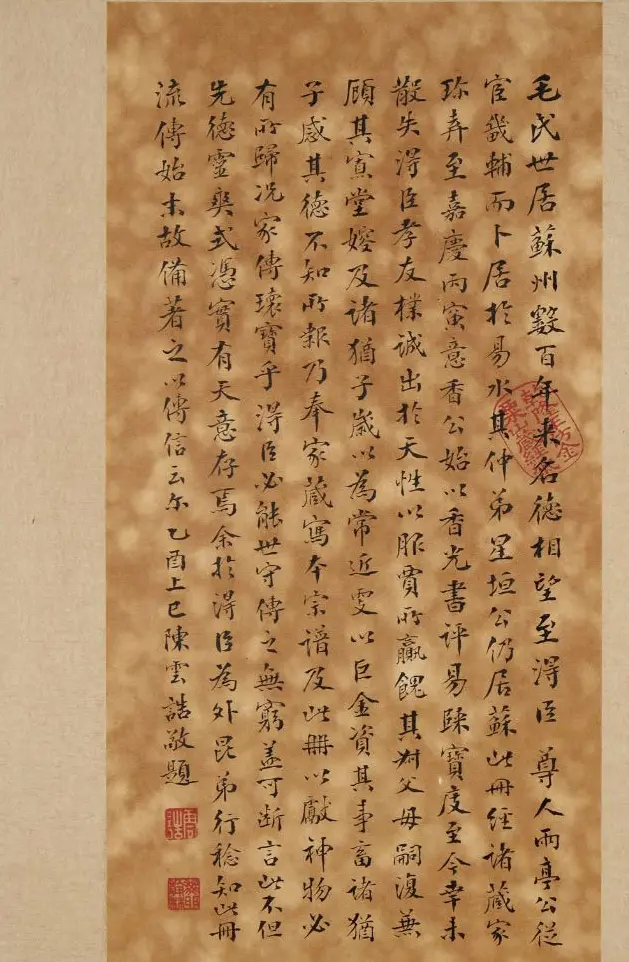 毛氏世居蘇州數百年來名德相望至得臣 尊人雨亭公從
宦畿輔而卜居於易水其仲弟星垣公仍居蘇此冊經諸藏家
珎弆至嘉慶丙寅意香公始以香光書評易歸寶度至今幸未
散失得臣孝友樸誠出於天性以服賈所贏餽其對父母嗣復兼
顧其寡堂嫂及諸猶子歲以為常近更以巨金資其事畜諸猶
子感其德不知所報乃奉家藏寫本宗譜及此冊以獻神物必
有所歸况家傳瓌寶乎得臣必能世守傳之無窮盖可斷言此不但
先德靈爽式憑實有天意存焉余於得臣為外昆弟行稔知此冊
流傳始末故備著之以傳信云尔乙酉上巳陳雲誥敬題